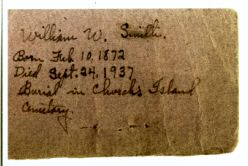 William W. Smith.
Born Feb 10, 1872
Died Sept. 24, 1937
Burial in Church's Island
Cemetary.